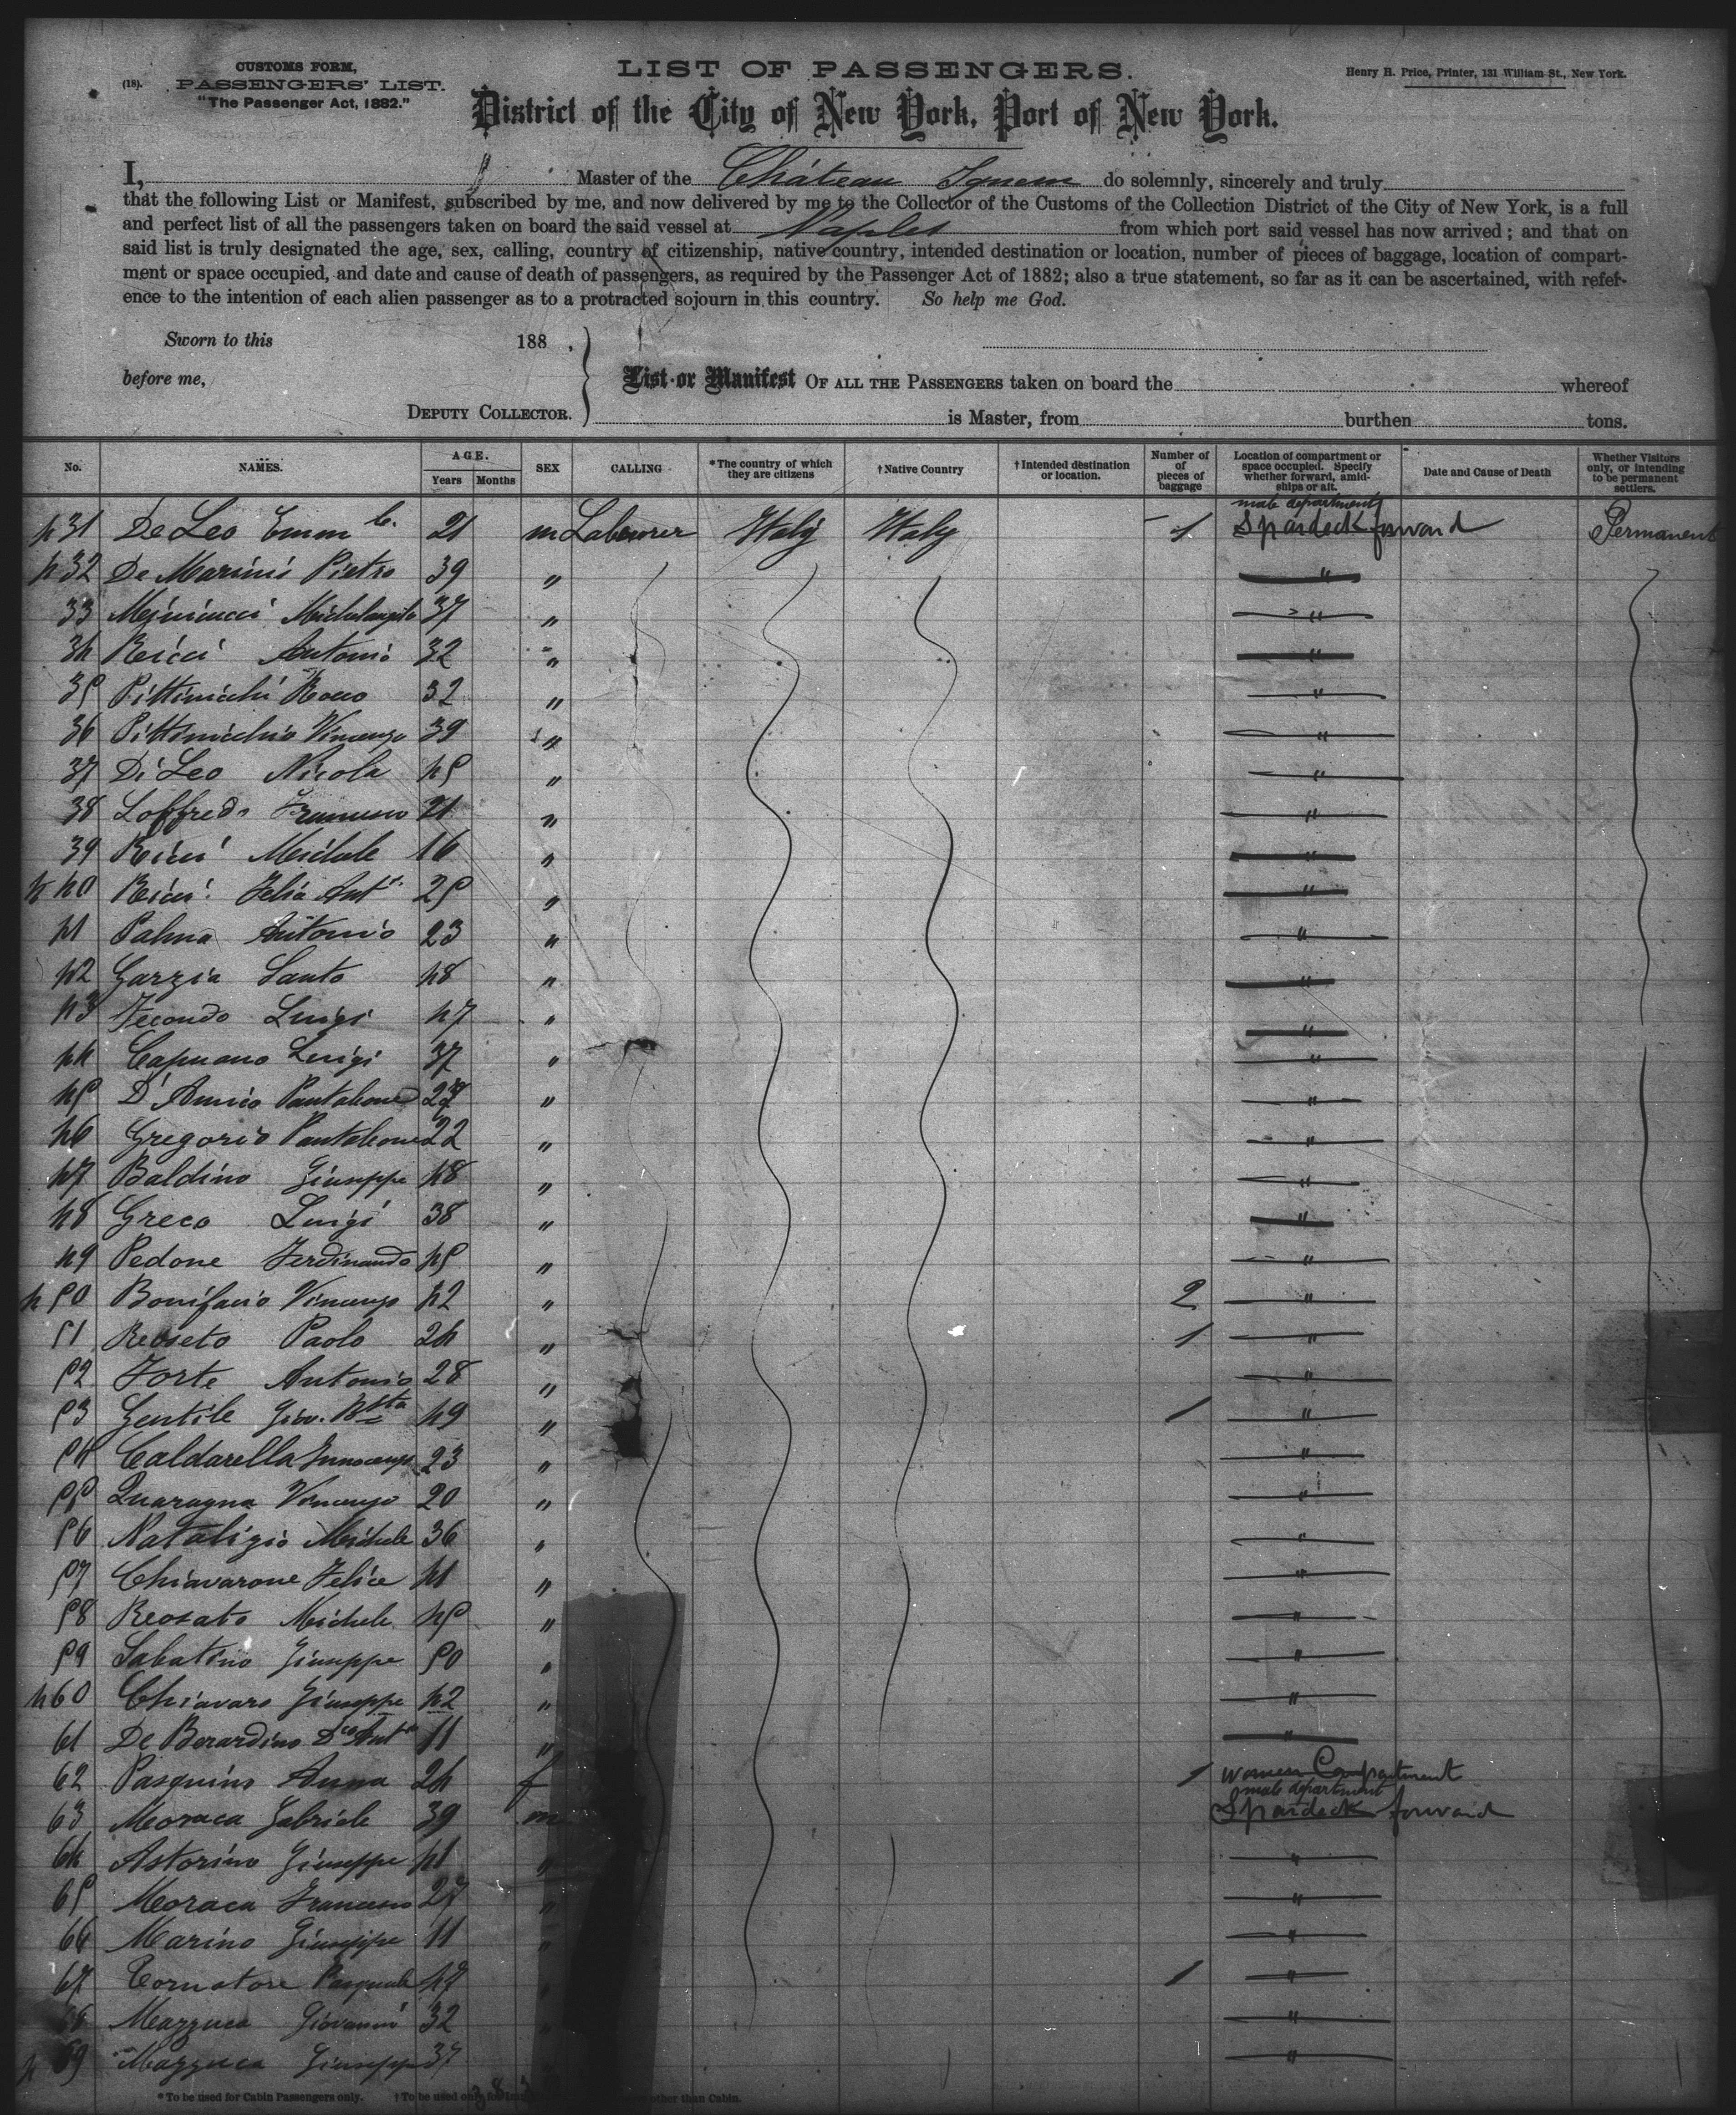 CUSTOMS FORM,
(18). PASSENGERS' LIST.
"The Passenger Act, 1882."
LIST OF PASSENGERS.
Henry H. Price, Printer, 131 William St., New York.
District of the City of New York, Port of New York.
I, Master of the Château Yquem do solemnly, sincerely and truly
that the following List or Manifest, subscribed by me, and now delivered by me to the Collector of the Customs of the Collection District of the City of New York, is a full
and perfect list of all the passengers taken on board the said vessel at Naples from which port said vessel has now arrived; and that on
said list is truly designated the age, sex, calling, country of citizenship, native country, intended destination or location, number of pieces of baggage, location of compart-
ment or space occupied, and date and cause of death of passengers, as required by the Passenger Act of 1882; also a true statement, so far as it can be ascertained, with refer-
ence to the intention of each alien passenger as to a protracted sojourn in this country. So help me God.
Sworn to this 188 ,
before me,
DEPUTY COLLECTOR.
List or Manifest OF ALL THE PASSENGERS taken on board the whereof
is Master, from burthen tons.
No. NAMES. AGE. Years Months SEX CALLING *The country of which they are citizens †Native Country †Intended destination or location. Number of of pieces of baggage Location of compartment or space occupied. Specify whether forward, amid-ships or alt. Date and Cause of Death Whether Visitors only, or intending to be permanent settlers.
male department
431 De Leo Emm 21 m Labourer Italy Italy 1 Spardeck forward Permanent
432 De Marinis Pietro 39 " "
33 Michelangelo 37 " "
34 Ricci Antonio 32 " "
35 Rocco 32 " "
36 Pittinicchio Vincenzo 39 " "
37 Di Leo Nicola 45 " "
38 Loffredo Francesco 21 " "
39 Ricci Michele 16 " "
440 Ricci Felice Ant° 25 " "
41 Palma Antonio 23 " "
42 Garzia Santo 48 " "
43 Luigi 47 " "
44 Capuano Luigi 37 " "
45 D'Amico Pantaleone " "
46 Gregorio Pantaleone 22 " "
47 Baldino Giuseppe 48 " "
48 Greco Luigi 38 " "
49 Pedone Ferdinando 45 " "
450 Bonifacio Vincenzo 42 " 2 "
51 Paolo 24 " 1 "
52 Forte Antonio 28 " "
53 Gentile Giov. Bsta 49 " 1 "
54 Caldarella Innocenzo 23 " "
55 Quaragna Vincenzo 20 " "
56 Natalizio Michele 36 " "
57 Chiavarone Felice 41 " "
58 Rosato Michele 45 " "
59 Sabatino Giuseppe 50 " "
460 Chiavaro Giuseppe 42 " "
61 De Berardino Dco Ant° 11 " "
62 Pasquino Anna 24 f 1 women Compartment
male department
63 Moraca Gabriele 39 m Spardeck forward
64 Astorino Giuseppe 41 " "
65 Moraca Francesco 27 " "
66 Marino Giuseppe 11 " "
67 Cornatore Pasquale 47 1 "
68 Mazzuca Giovanni 32 "
469 Mazzuca Giuseppe 37 "
*To be used for Cabin Passengers only. †To be used only for other than Cabin.